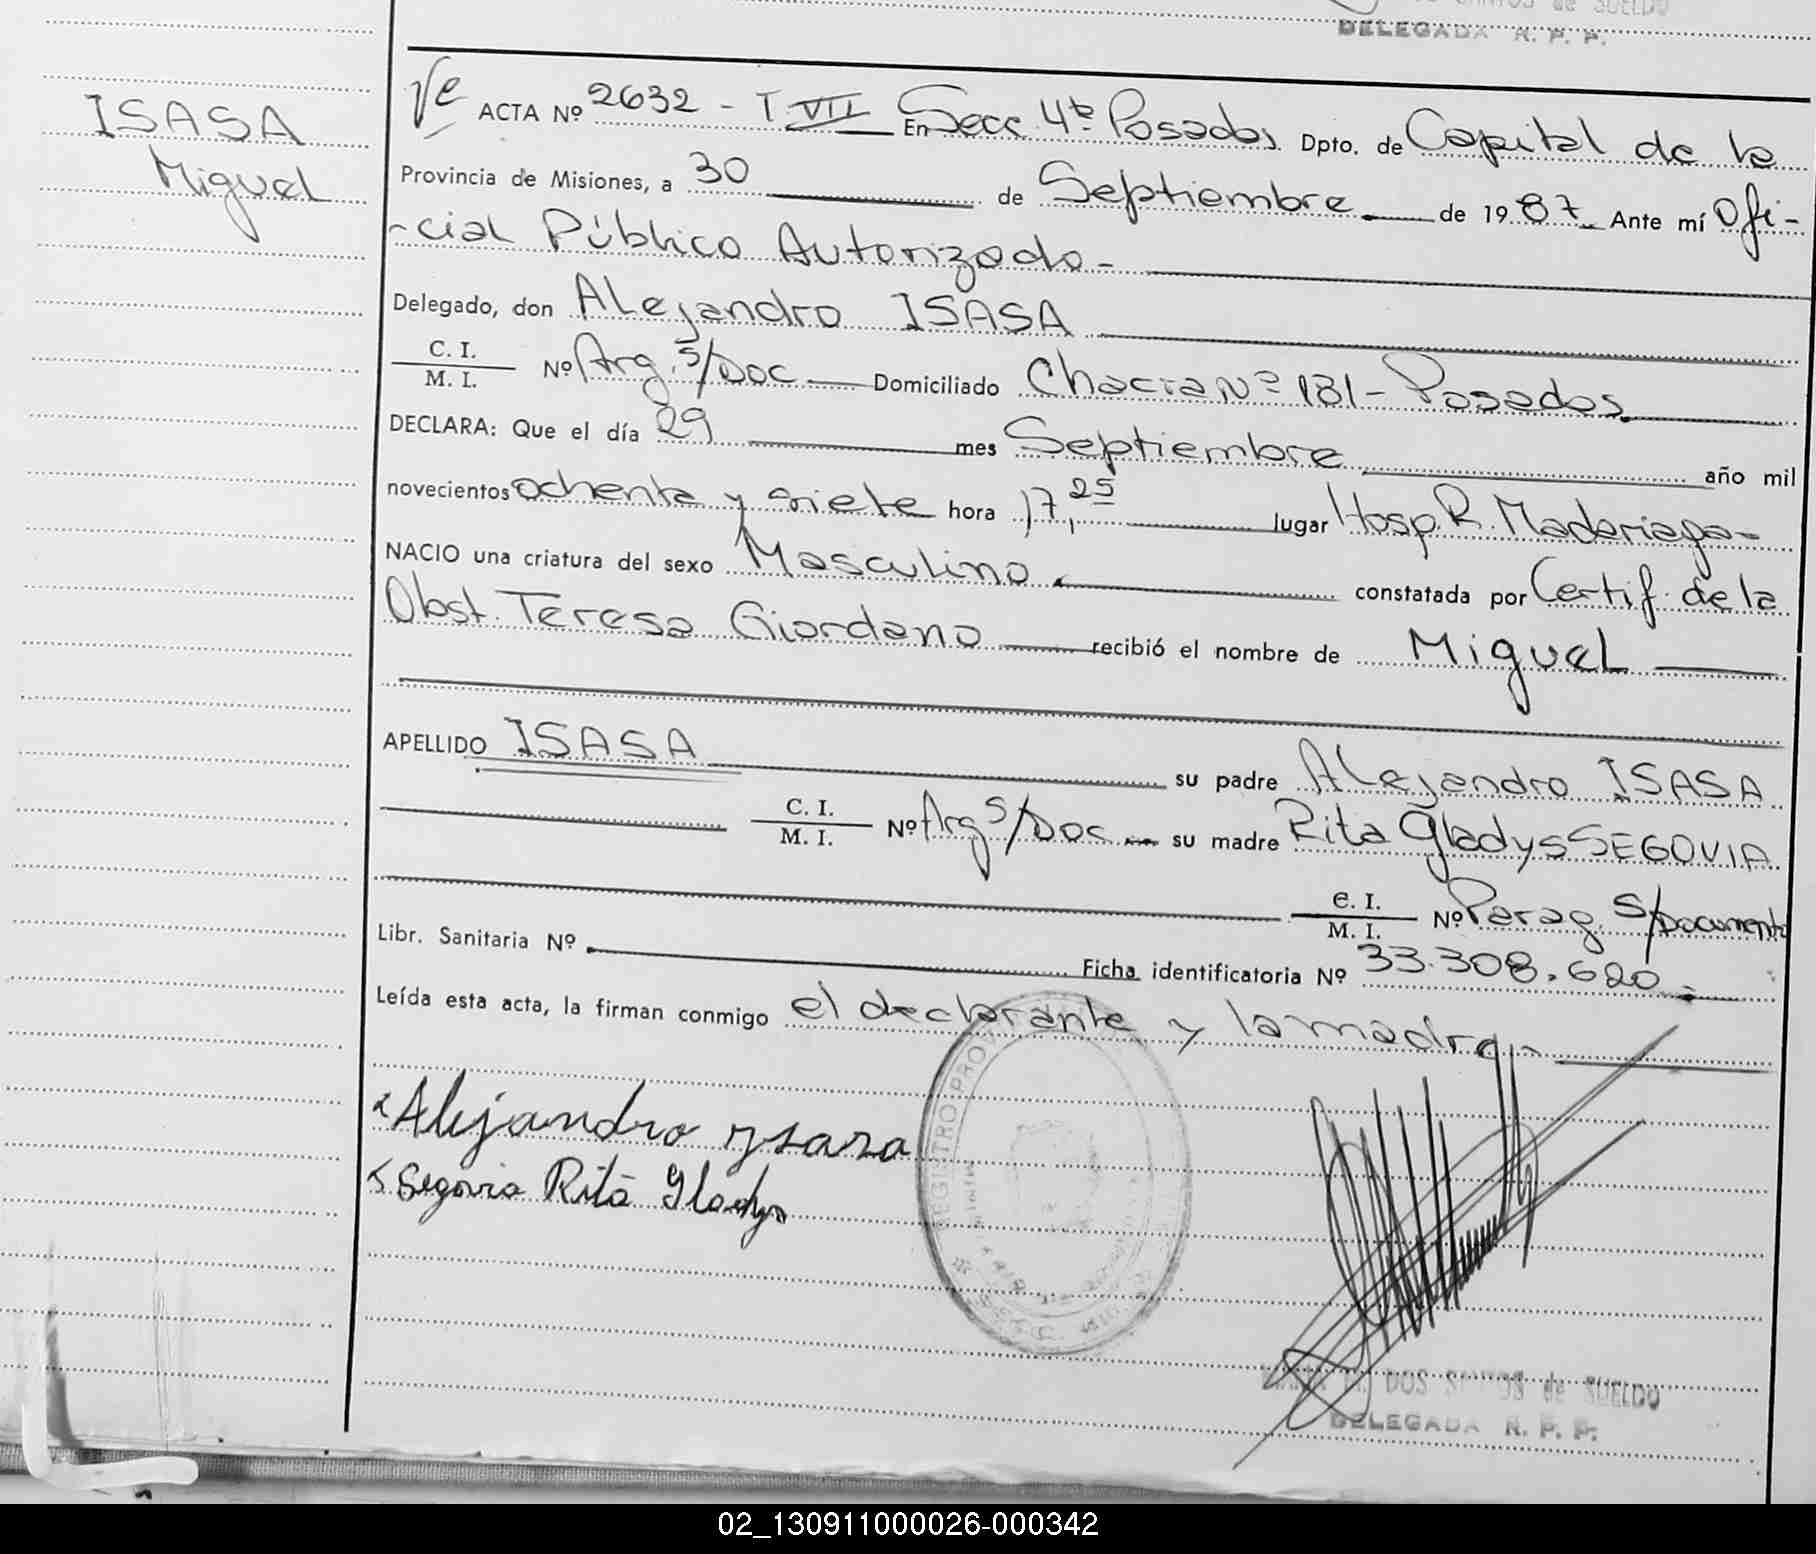 DELEGADA R. P. P.
ISASA
Miguel
ACTA Nº 2632 - T VII En Secc 4ta Posadas Dpto. de Capital de la
Provincia de Misiones, a 30 de Septiembre de 1987 Ante mí Ofi-
-cial Público Autorizado-
Delegado, don Alejandro ISASA
C. I.
M. I. Nº Arg. S/Doc Domiciliado Chacra Nº 181- Posadas
DECLARA: Que el día 29 mes Septiembre año mil
novecientos ochenta y siete hora 17,25 lugar Hosp. R. Madariaga-
NACIO una criatura del sexo Masculino constatada por Certif. de la
Obst. Teresa Giordano recibió el nombre de Miguel
APELLIDO ISASA su padre Alejandro ISASA
C. I.
M. I. Nº Arg S/Doc su madre Rita Gladys SEGOVIA
C. I.
M. I. Nº Parag. S/Documento
Libr. Sanitaria Nº Ficha identificatoria Nº 33.308.620
Leída esta acta, la firman conmigo el declarante y la madre-
Alejandro Ysasa
Segovia Rita Gladys
REGISTRO PROV
DOS SANTOS de SUELDO
DELEGADA R. P. P.
02_130911000026-000342